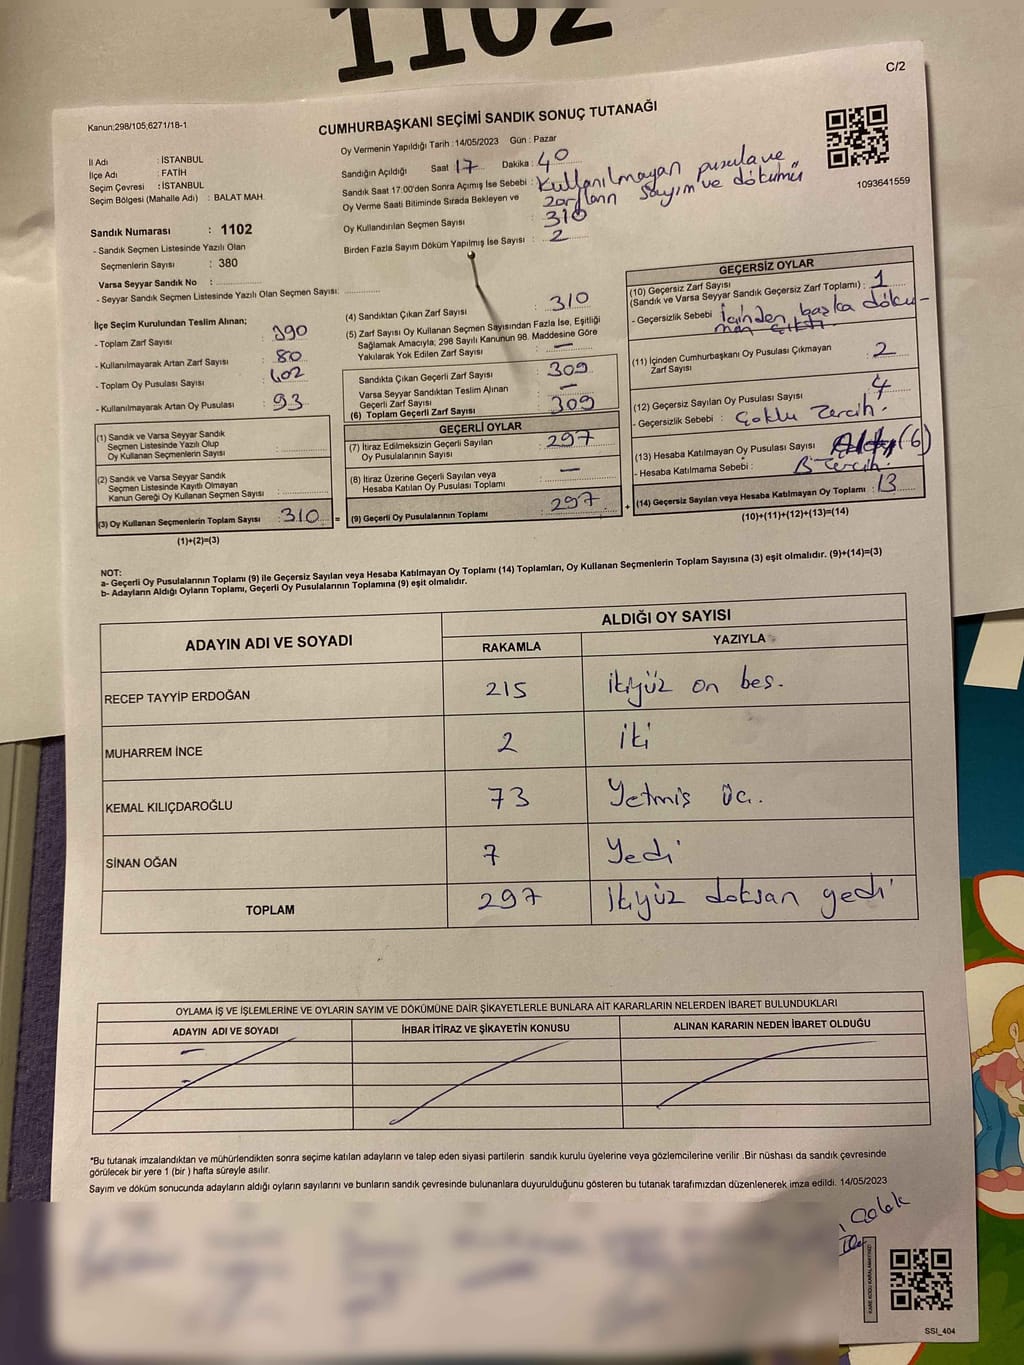 1102
C/2
Kanun;298/105;6271/18-1
CUMHURBAŞKANI SEÇİMİ SANDIK SONUÇ TUTANAĞI
1093641559
İl Adı : İSTANBUL
İlçe Adı : FATİH
Seçim Çevresi : İSTANBUL
Seçim Bölgesi (Mahalle Adı) : BALAT MAH.
Sandık Numarası : 1102
- Sandık Seçmen Listesinde Yazılı Olan
Seçmenlerin Sayısı : 380
Varsa Seyyar Sandık No :
- Seyyar Sandık Seçmen Listesinde Yazılı Olan Seçmen Sayısı:
Oy Vermenin Yapıldığı Tarih : 14/05/2023 Gün : Pazar
Sandığın Açıldığı Saat 17 Dakika : 40
Sandık Saat 17:00'den Sonra Açımış İse Sebebi : Kullanılmayan pusula ve
zarfların sayım ve dökümü
Oy Verme Saati Bitiminde Sırada Bekleyen ve
Oy Kullandırılan Seçmen Sayısı 310
Birden Fazla Sayım Döküm Yapılmış İse Sayısı : 2
İlçe Seçim Kurulundan Teslim Alınan;
- Toplam Zarf Sayısı : 390
- Kullanılmayarak Artan Zarf Sayısı : 80
- Toplam Oy Pusulası Sayısı : 402
- Kullanılmayarak Artan Oy Pusulası : 93
(1) Sandık ve Varsa Seyyar Sandık
Seçmen Listesinde Yazılı Olup
Oy Kullanan Seçmenlerin Sayısı :
(2) Sandık ve Varsa Seyyar Sandık
Seçmen Listesinde Kayıtlı Olmayan
Kanun Gereği Oy Kullanan Seçmen Sayısı :
(3) Oy Kullanan Seçmenlerin Toplam Sayısı : 310 =
(1)+(2)=(3)
(4) Sandıktan Çıkan Zarf Sayısı : 310
(5) Zarf Sayısı Oy Kullanan Seçmen Sayısından Fazla İse, Eşitliği
Sağlamak Amacıyla, 298 Sayılı Kanunun 98. Maddesine Göre
Yakılarak Yok Edilen Zarf Sayısı : —
Sandıkta Çıkan Geçerli Zarf Sayısı : 309
Varsa Seyyar Sandıktan Teslim Alınan
Geçerli Zarf Sayısı : —
(6) Toplam Geçerli Zarf Sayısı : 309
GEÇERLİ OYLAR
(7) İtiraz Edilmeksizin Geçerli Sayılan
Oy Pusulalarının Sayısı : 297
(8) İtiraz Üzerine Geçerli Sayılan veya
Hesaba Katılan Oy Pusulası Toplamı : —
(9) Geçerli Oy Pusulalarının Toplamı : 297 +
GEÇERSİZ OYLAR
(10) Geçersiz Zarf Sayısı
(Sandık ve Varsa Seyyar Sandık Geçersiz Zarf Toplamı) : 1
- Geçersizlik Sebebi : İçinden başka dökü-
man çıktı.
(11) İçinden Cumhurbaşkanı Oy Pusulası Çıkmayan
Zarf Sayısı : 2
(12) Geçersiz Sayılan Oy Pusulası Sayısı : 4
- Geçersizlik Sebebi : Çoklu Tercih.
(13) Hesaba Katılmayan Oy Pusulası Sayısı (6)
- Hesaba Katılmama Sebebi : Tercih.
(14) Geçersiz Sayılan veya Hesaba Katılmayan Oy Toplamı : 13
(10)+(11)+(12)+(13)=(14)
NOT:
a- Geçerli Oy Pusulalarının Toplamı (9) ile Geçersiz Sayılan veya Hesaba Katılmayan Oy Toplamı (14) Toplamları, Oy Kullanan Seçmenlerin Toplam Sayısına (3) eşit olmalıdır. (9)+(14)=(3)
b- Adayların Aldığı Oyların Toplamı, Geçerli Oy Pusulalarının Toplamına (9) eşit olmalıdır.
ADAYIN ADI VE SOYADI ALDIĞI OY SAYISI
RAKAMLA YAZIYLA
RECEP TAYYİP ERDOĞAN 215 ikiyüz on beş.
MUHARREM İNCE 2 iki
KEMAL KILIÇDAROĞLU 73 Yetmiş üç.
SİNAN OĞAN 7 Yedi
TOPLAM 297 ikiyüz doksan yedi
OYLAMA İŞ VE İŞLEMLERİNE VE OYLARIN SAYIM VE DÖKÜMÜNE DAİR ŞİKAYETLERLE BUNLARA AİT KARARLARIN NELERDEN İBARET BULUNDUKLARI
ADAYIN ADI VE SOYADI İHBAR İTİRAZ VE ŞİKAYETİN KONUSU ALINAN KARARIN NEDEN İBARET OLDUĞU
*Bu tutanak imzalandıktan ve mühürlendikten sonra seçime katılan adayların ve talep eden siyasi partilerin sandık kurulu üyelerine veya gözlemcilerine verilir .Bir nüshası da sandık çevresinde
görülecek bir yere 1 (bir ) hafta süreyle asılır.
Sayım ve döküm sonucunda adayların aldığı oyların sayılarını ve bunların sandık çevresinde bulunanlara duyurulduğunu gösteren bu tutanak tarafımızdan düzenlenerek imza edildi. 14/05/2023
KARE KODU KARALAMAYINIZ!
SSI_404